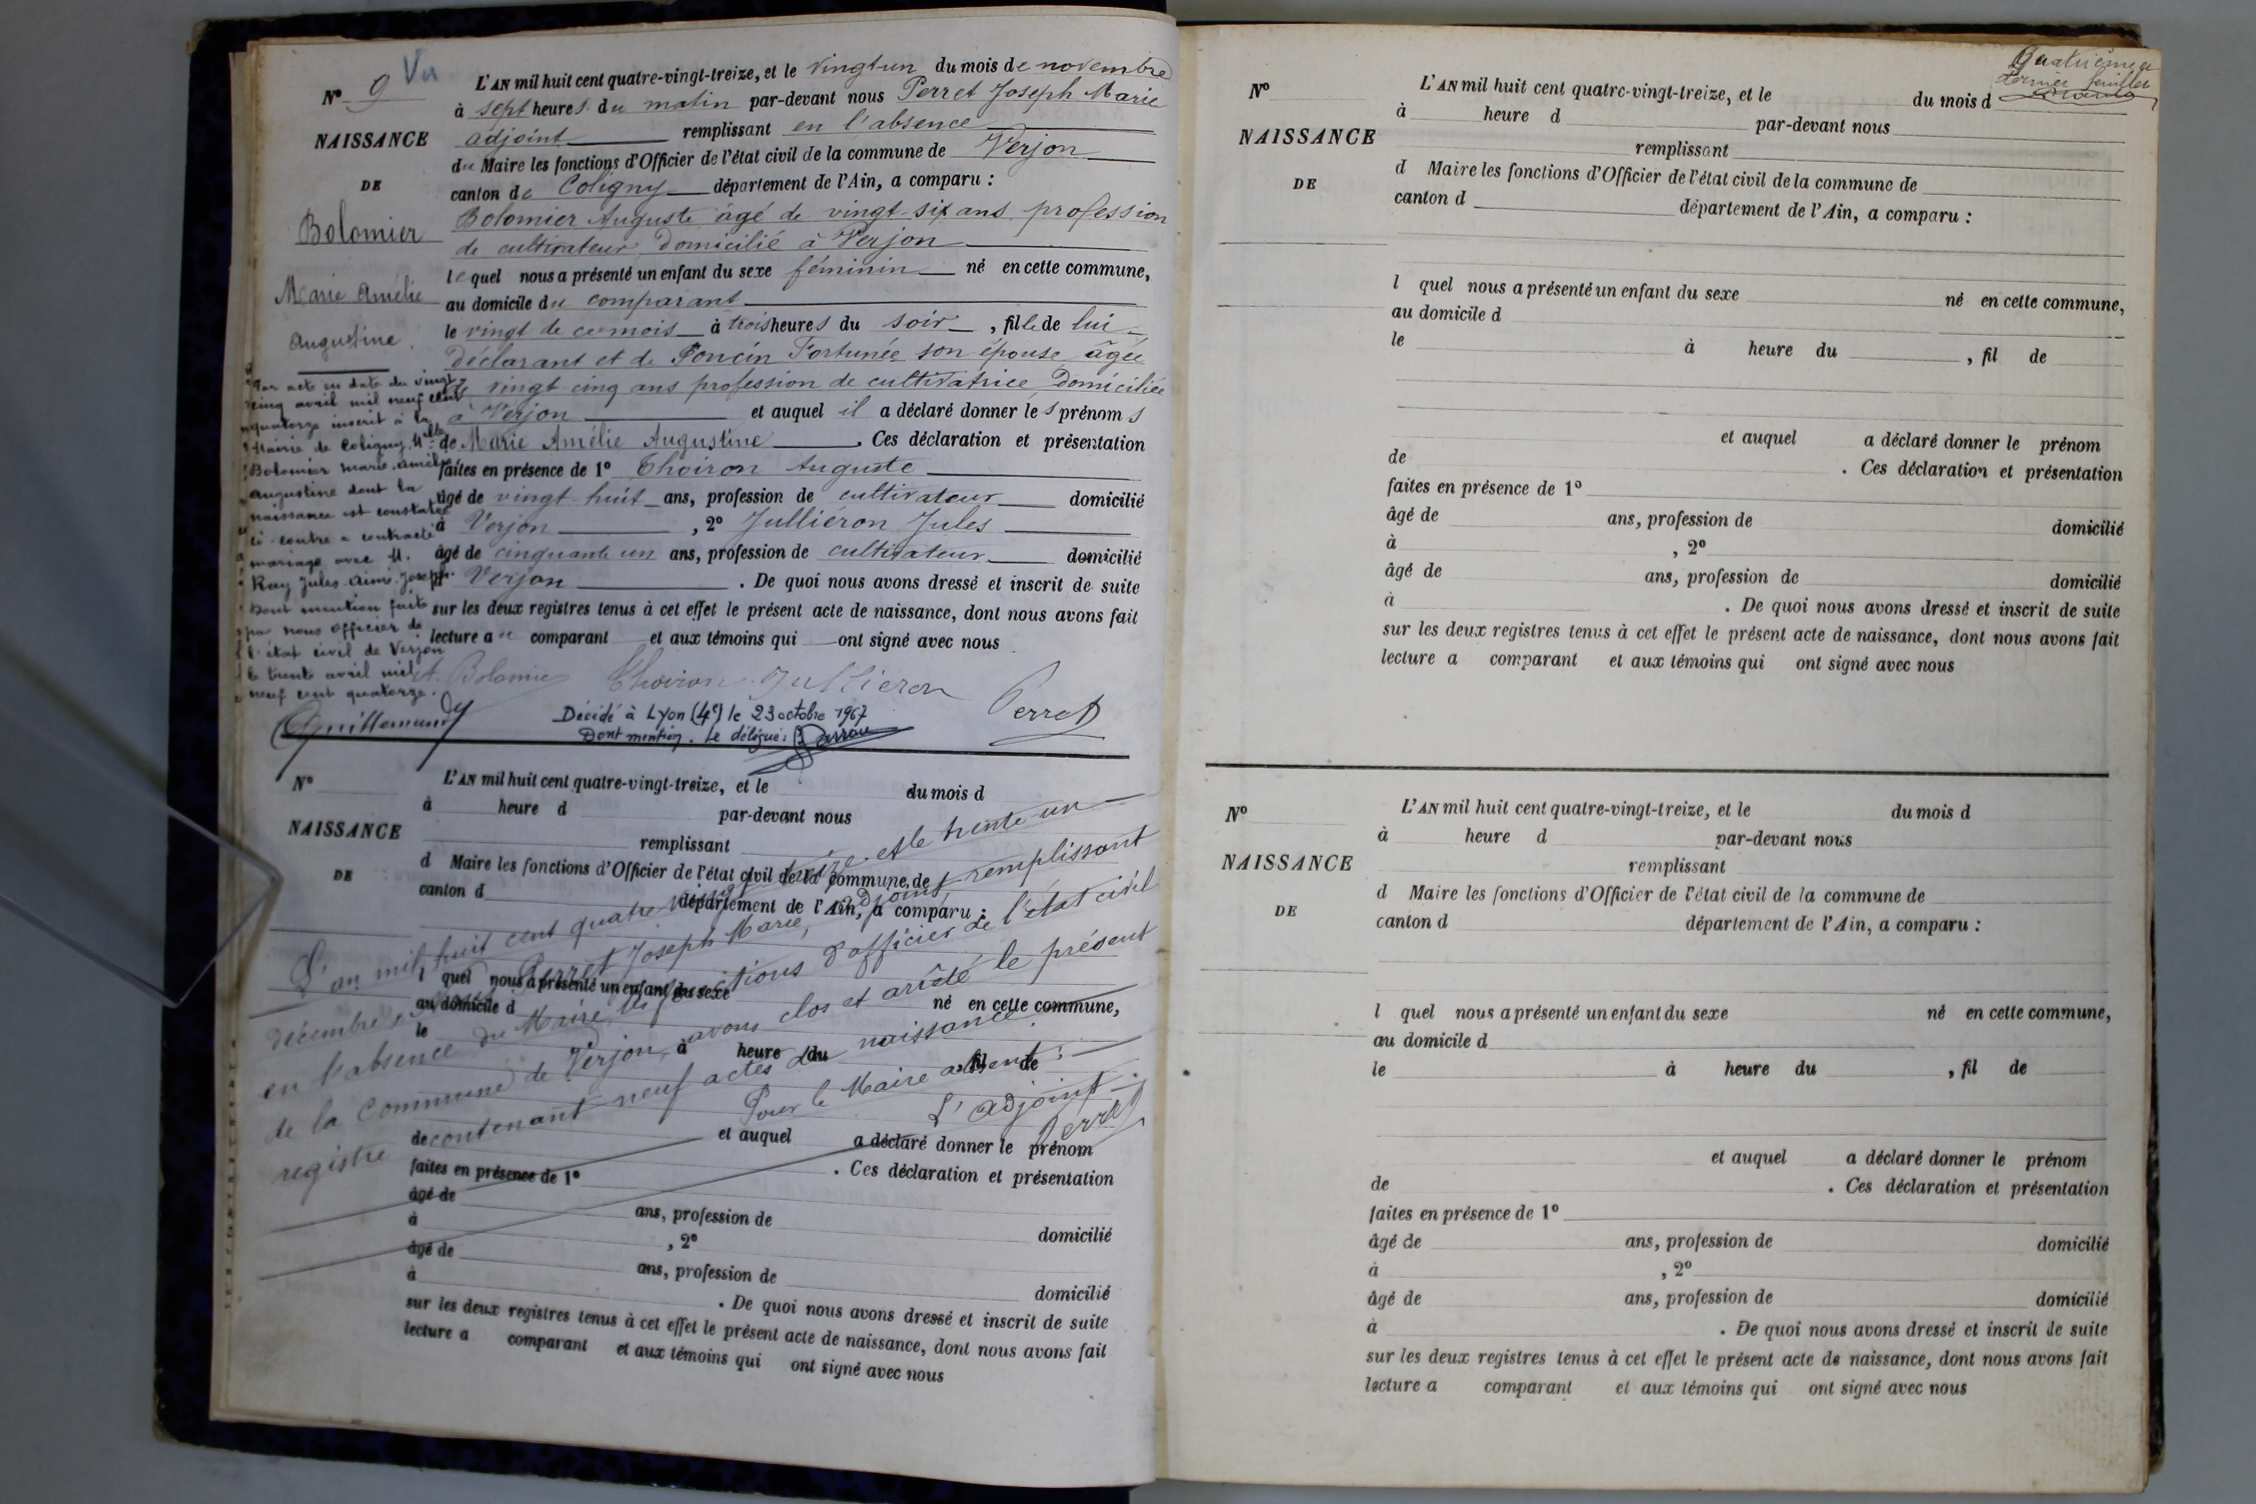 Nº 9 Vu
NAISSANCE
DE
Bolomier
Marie Amélie
Augustine
L'AN mil huit cent quatre-vingt-treize, et le vingt-un du mois de novembre
à sept heures du matin par-devant nous Perret Joseph Marie
adjoint remplissant en l'absence
du Maire les fonctions d'Officier de l'état civil de la commune de Verjon
canton de Coligny département de l'Ain, a comparu :
Bolomier Auguste âgé de vingt-six ans profession
de cultivateur domicilié à Verjon
lequel nous a présenté un enfant du sexe féminin né en cette commune,
au domicile du comparant
le vingt de ce mois à trois heures du soir, fille de lui
déclarant et de Poncin Fortunée son épouse âgée
de vingt cinq ans profession de cultivatrice domiciliée
à Verjon et auquel il a déclaré donner les prénoms
de Marie Amélie Augustine. Ces déclaration et présentation
faites en présence de 1º Choiron Auguste
âgé de vingt huit ans, profession de cultivateur domicilié
à Verjon, 2º Julliéron Jules
âgé de cinquante un ans, profession de cultivateur domicilié
à Verjon. De quoi nous avons dressé et inscrit de suite
sur les deux registres tenus à cet effet le présent acte de naissance, dont nous avons fait
lecture au comparant et aux témoins qui ont signé avec nous
A. Bolomier Choiron Jullieron Perret
Par acte en date du vingt
cinq avril mil neuf cent
quatorze inscrit à la
Mairie de Coligny, Mlle
Bolomier Marie Amélie
Augustine dont la
naissance est constatée
ci-contre a contracté
mariage avec M.
Ray Jules Aimé Joseph.
Dont mention faite
par nous Officier de
l'état civil de Verjon
le trente avril mil
neuf cent quatorze.
Guillemundy
Décédé à Lyon (4e) le 23 octobre 1967
Dont mention. Le délégué :
Nº
NAISSANCE
DE
L'AN mil huit cent quatre-vingt-treize, et le du mois d
à heure d par-devant nous
remplissant
d Maire les fonctions d'Officier de l'état civil de la commune de
canton d département de l'Ain, a comparu :
l quel nous a présenté un enfant du sexe né en cette commune,
au domicile d
le à heure du , fil de
et auquel a déclaré donner le prénom
de . Ces déclaration et présentation
faites en présence de 1º
âgé de ans, profession de domicilié
à , 2º
âgé de ans, profession de domicilié
à . De quoi nous avons dressé et inscrit de suite
sur les deux registres tenus à cet effet le présent acte de naissance, dont nous avons fait
lecture a comparant et aux témoins qui ont signé avec nous
L'an mil huit cent quatre vingt treize et le trente un
décembre nous Perret Joseph Marie, adjoint remplissant
en l'absence du Maire les fonctions d'officier de l'état civil
de la Commune de Verjon, avons clos et arrêté le présent
registre contenant neuf actes de naissance.
Pour le Maire absent :
L'adjoint
Perret
Quatrième et
dernier feuillet
Nº
NAISSANCE
DE
L'AN mil huit cent quatre-vingt-treize, et le du mois d
à heure d par-devant nous
remplissant
d Maire les fonctions d'Officier de l'état civil de la commune de
canton d département de l'Ain, a comparu :
l quel nous a présenté un enfant du sexe né en cette commune,
au domicile d
le à heure du , fil de
et auquel a déclaré donner le prénom
de . Ces déclaration et présentation
faites en présence de 1º
âgé de ans, profession de domicilié
à , 2º
âgé de ans, profession de domicilié
à . De quoi nous avons dressé et inscrit de suite
sur les deux registres tenus à cet effet le présent acte de naissance, dont nous avons fait
lecture a comparant et aux témoins qui ont signé avec nous
Nº
NAISSANCE
DE
L'AN mil huit cent quatre-vingt-treize, et le du mois d
à heure d par-devant nous
remplissant
d Maire les fonctions d'Officier de l'état civil de la commune de
canton d département de l'Ain, a comparu :
l quel nous a présenté un enfant du sexe né en cette commune,
au domicile d
le à heure du , fil de
et auquel a déclaré donner le prénom
de . Ces déclaration et présentation
faites en présence de 1º
âgé de ans, profession de domicilié
à , 2º
âgé de ans, profession de domicilié
à . De quoi nous avons dressé et inscrit de suite
sur les deux registres tenus à cet effet le présent acte de naissance, dont nous avons fait
lecture a comparant et aux témoins qui ont signé avec nous